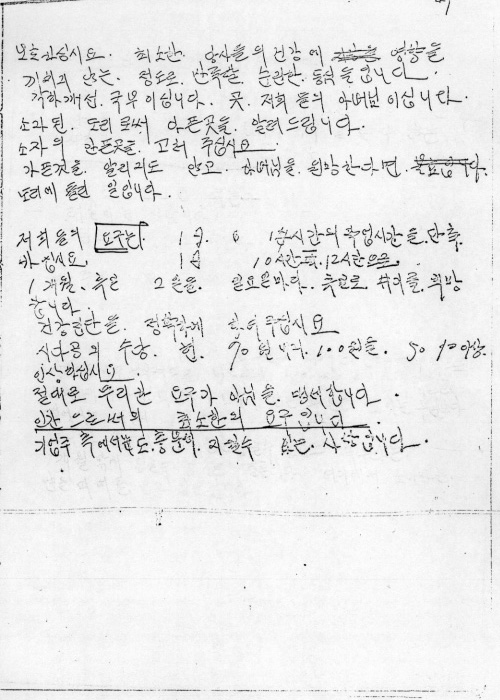 보호하십시요. 최소한. 당사들의 건강에 영향을
끼치지 않는. 정도로. 만족할. 순진한. 동심들입니다.
각하께선. 국부이십니다. 곳. 저희들의 아버님이십니다.
소자된. 도리로써 아픈곳을. 알려드립니다.
소자의 아픈곳을. 고쳐 주십시요
아픈곳을. 알리지도 않고. 아버님을. 원망한다면.
도리에 틀린 일입니다.
저희들의 요구는. 1일 시간의 작업시간을. 단축.
하십시요. 1일 10시간 12시간으로.
1개월. 휴일 2일을. 일요일마다. 휴일로. 쉬기를. 희망
합니다.
건강진단을. 정확하게 하여 주십시요
시다공의 수당. 현. 70원 내지. 100원을. 50 %이상.
인상하십시요
절대로 무리한 요구가 아님을. 맹세합니다.
인간으로서의 최소한의 요구입니다
기업주 측에서도 충분히. 지킬수 있는. 사항입니다.